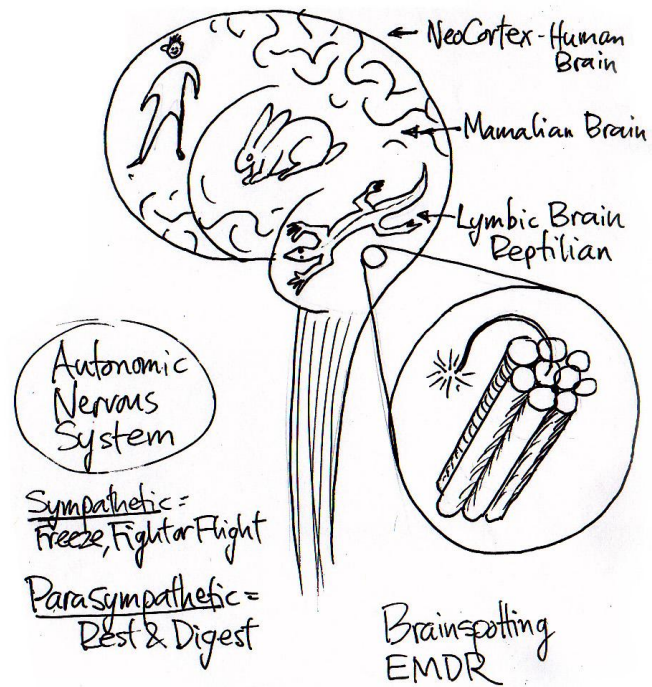 NeoCortex-Human
Brain
Mamalian Brain
Lymbic Brain
Reptilian
Autonomic
Nervous
System
Sympathetic=
Freeze, Fight or Flight
Parasympathetic=
Rest & Digest
Brainspotting
EMDR